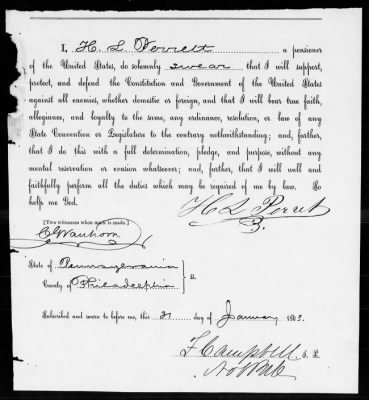 I, H. L. Perrett a pensioner
of the United States, do solemnly swear that I will support,
protect, and defend the Constitution and Government of the United States
against all enemies, whether domestic or foreign, and that I will bear true faith,
allegiance, and loyalty to the same, any ordinance, resolution, or law of any
State Convention or Legislature to the contrary notwithstanding; and, further,
that I do this with a full determination, pledge, and purpose, without any
mental reservation or evasion whatsoever; and, further, that I will well and
faithfully perform all the duties which may be required of me by law. So
help me God.
H L Perret
[Two witnesses when mark is made.]
C. Vanhorn
State of Pennsylvania
County of Philadelphia } ss.
Subscribed and sworn to before me, this 31 day of January 1863.
F Campbell, J. P.
Not Pub